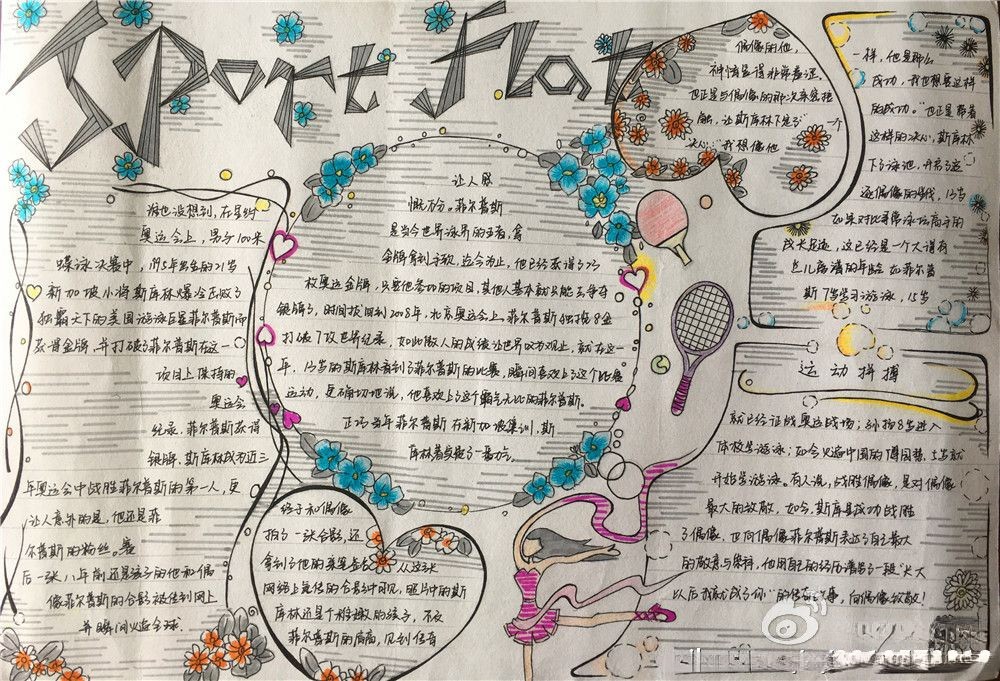 Sport flat
谁也没想到，在里约
奥运会上，男子100米
蝶泳决赛中，1995年出生的21岁
新加坡小将斯库林爆冷击败了
独霸天下的美国游泳巨星菲尔普斯而
获得金牌，并打破了菲尔普斯在这一
项目上保持的
奥运会
纪录，菲尔普斯获得
银牌、斯库林成为近三
年奥运会中战胜菲尔普斯的第一人，更
让人意外的是，他还是菲
尔普斯的粉丝。赛
后一张八年前还是孩子的他和偶
像菲尔普斯的合影被传到网上
并瞬间火遍全球
让人感
慨万分。菲尔普斯
是当今世界泳界的王者，拿
金牌拿到手软，迄今为止，他已经获得了23
枚奥运金牌，只要他参加的项目，其他人基本就只能去争夺
银牌了，时间拨回到2008年，北京奥运会上，菲尔普斯独揽8金
打破了7项世界纪录，如此傲人的成绩让世界叹为观止，就在这一
年，13岁的斯库林看到了菲尔普斯的比赛，瞬间喜欢上了这个比赛
运动，更确切地说，他喜欢上了这个霸气无比的菲尔普斯。
正巧当年菲尔普斯在新加坡集训，斯
库林着实
终于和偶像
拍了一张合影，还
拿到了他的亲笔签
网络上流传的合影中可见，照片中的斯
库林还是个稚嫩的孩子，不及
菲尔普斯的肩高，见到传奇
偶像的他，
神情显得非常着迷，
也正是与偶像的那次亲密接
触，让斯库林下定了一个
决心："我想像他
一样，他是那么
成功，我也想要这样
的成功。"也正是带着
这样的决心，斯库林
下了泳池，开启了追
逐偶像的
在来对比
成长
斯7岁学习游泳，15岁
运动拼搏
就已经征战奥运战场；孙杨8岁进入
体校学游泳；如今火遍中国的傅园慧，5岁就
开始学游泳。有人说，战胜偶像，是对偶像
最大的致敬，如今，斯库林成功战胜
了偶像，也向偶像菲尔普斯表达了自己最大
的敬意与崇拜，他用自己的经历谱写了一段"长大
以后我就成了你"的传奇故事，向偶像致敬！